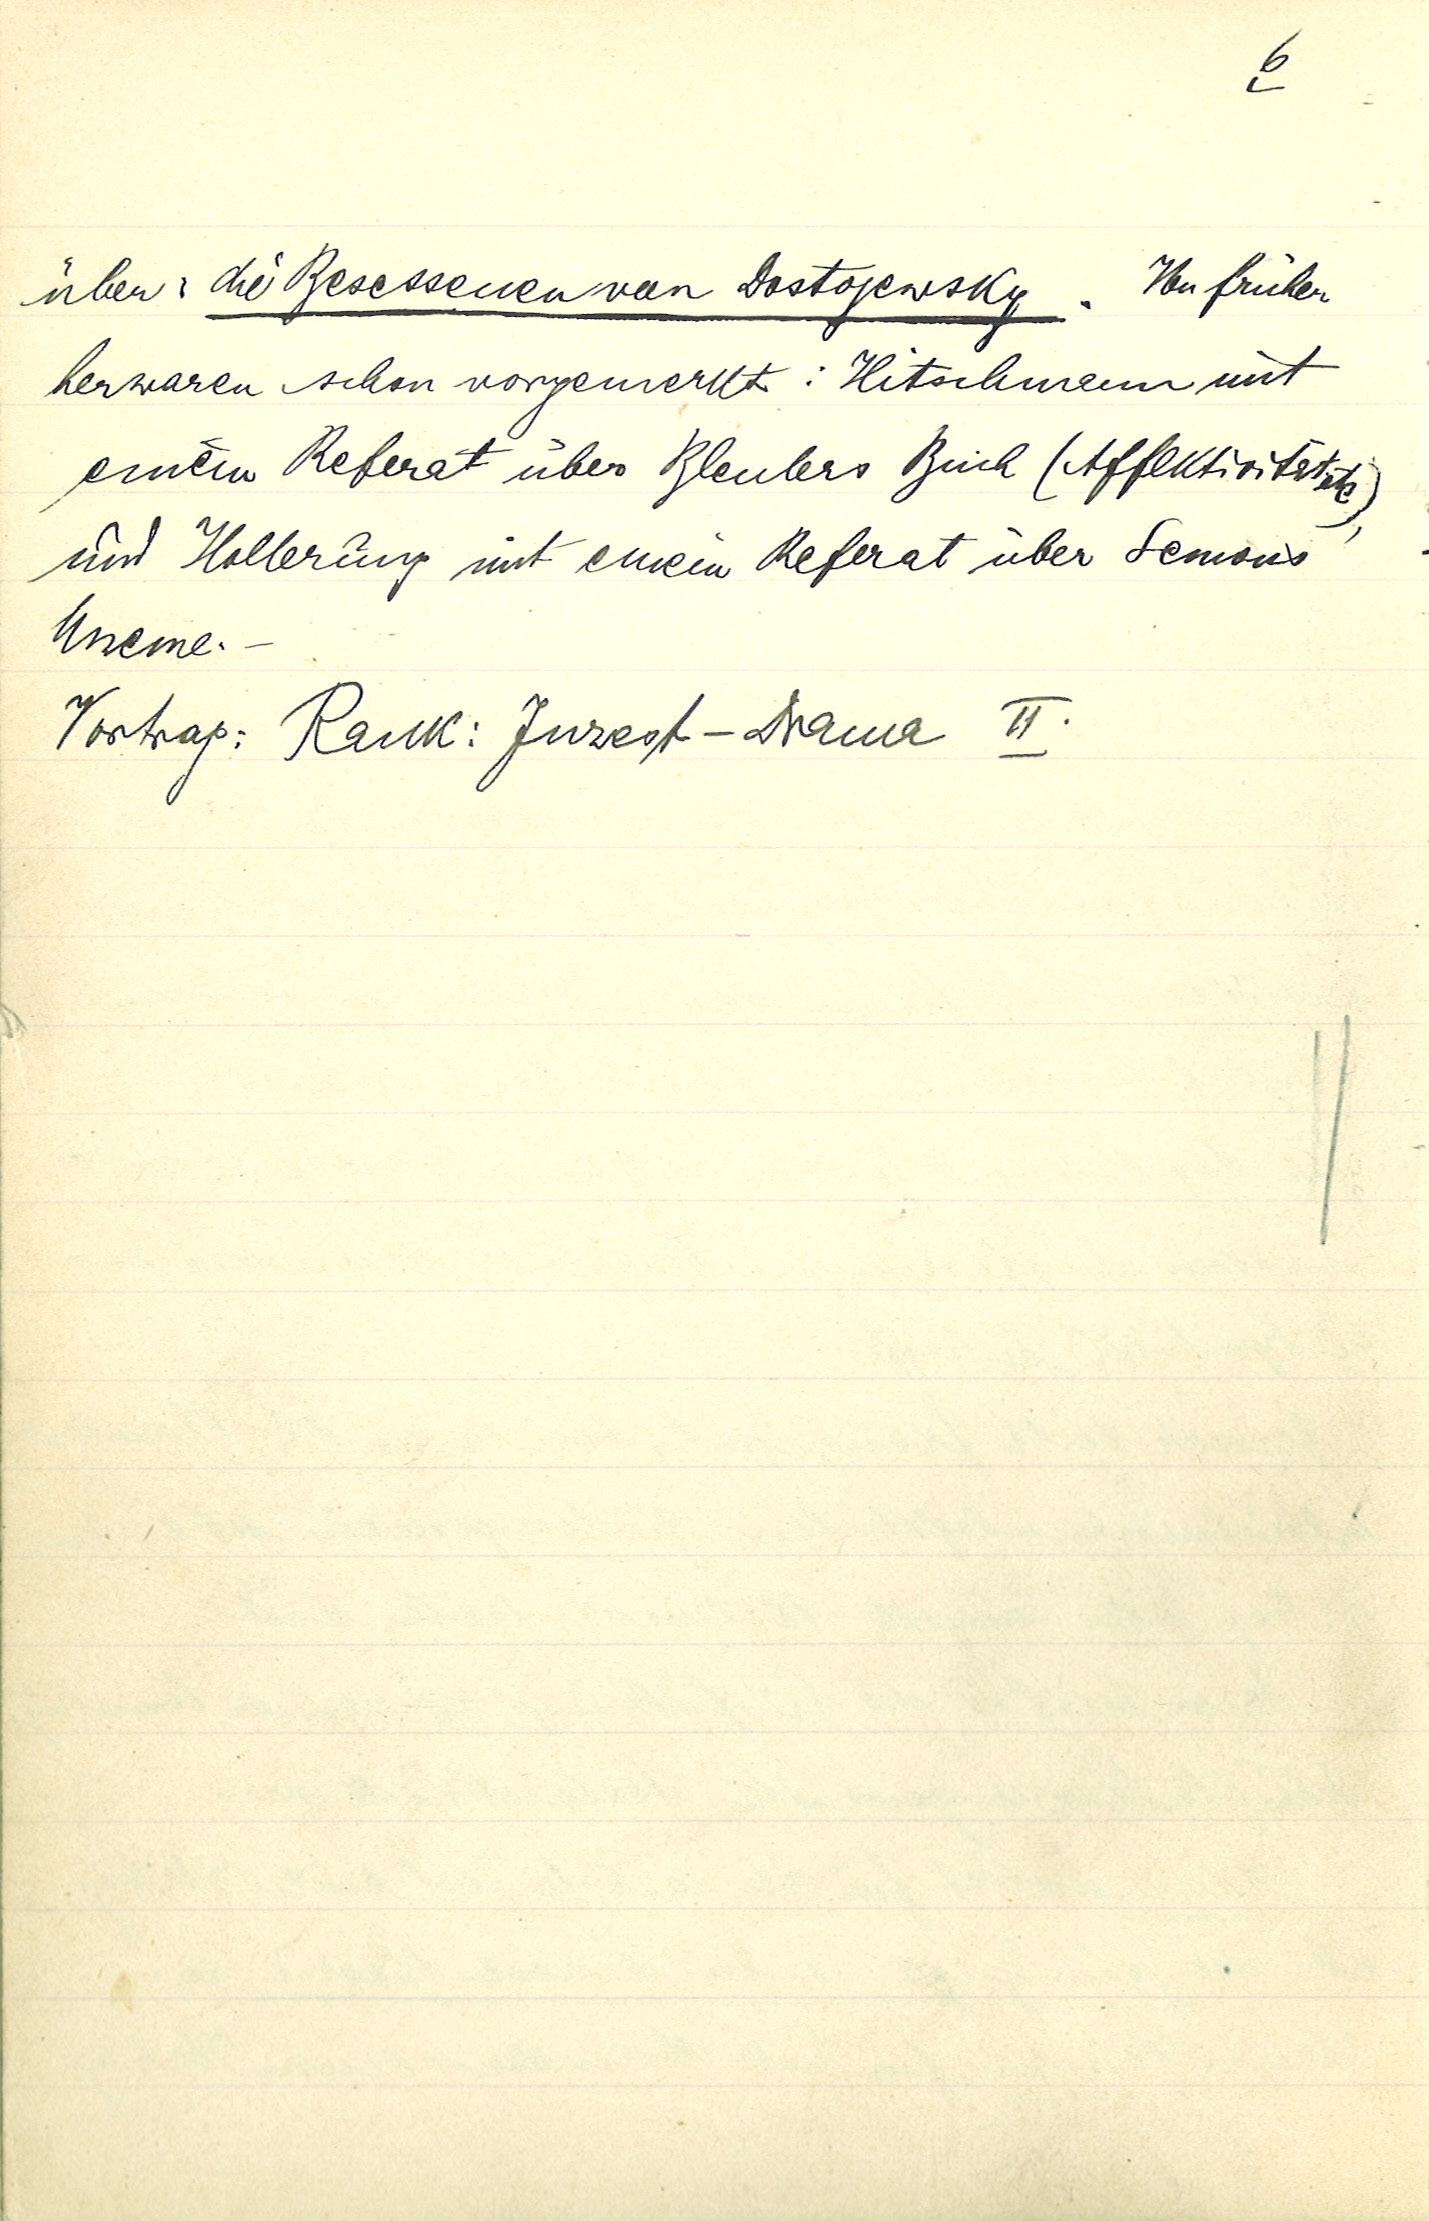 6
über: die Besessenen von Dostojewsky. Von früher
her waren schon vorgemerkt: Hitschmann mit
einem Referat über Bleulers Buch (Affektivität etc),
und Hollerung mit einem Referat über Semons
Mneme. –
Vortrag: Rank: Inzest–Drama II.